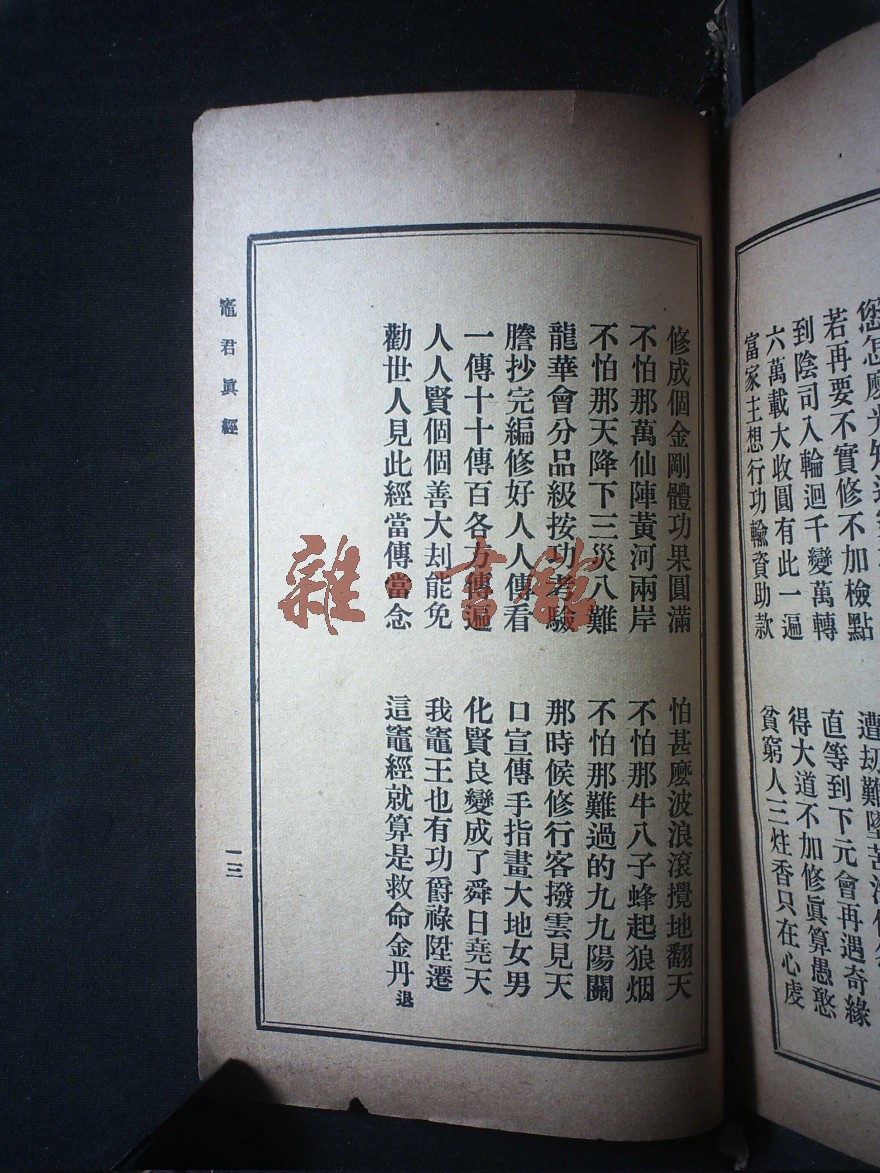 若再要不實修不加檢點　直等到下元會再遇奇緣
到陰司入輪迴千變萬轉　得大道不加修眞算愚憨
六萬載大收圓有此一遍
富家主想行功輸資助款　貧窮人三炷香只在心虔
修成個金剛體功果圓滿　怕甚麽波浪滾攪地翻天
不怕那萬仙陣黃河兩岸　不怕那牛八子蜂起狼烟
不怕那天降下三災八難　不怕那難過的九九陽關
龍華會分品級按功考驗　那時候修行客撥雲見天
謄抄完編修好人人傳看　口宣傳手指畫大地女男
一傳十十傳百各方傳遍　化賢良變成了舜日堯天
人人賢個個善大刦能免　我竈王也有功爵祿陞遷
勸世人見此經當傳當念　這竈經就算是救命金丹退
竈君眞經
一三
雜書館